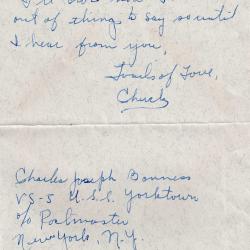 out of thing to say so until
I hear from you,
Loads of Love,
Chuck
Charles Joseph Bonness
VS-5 U.S.S. Yorktown
c/o Postmaster
New York, N.Y.